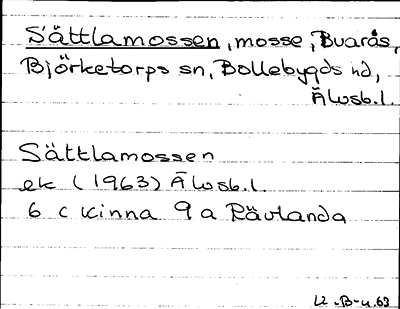 Sättlamossen, mosse, Buarås,
Björketorps sn, Bollebygds hd,
Älvsb.l.
Sättlamossen
ek (1963) Älvsb.l.
6 c Kinna 9 a Rävlanda